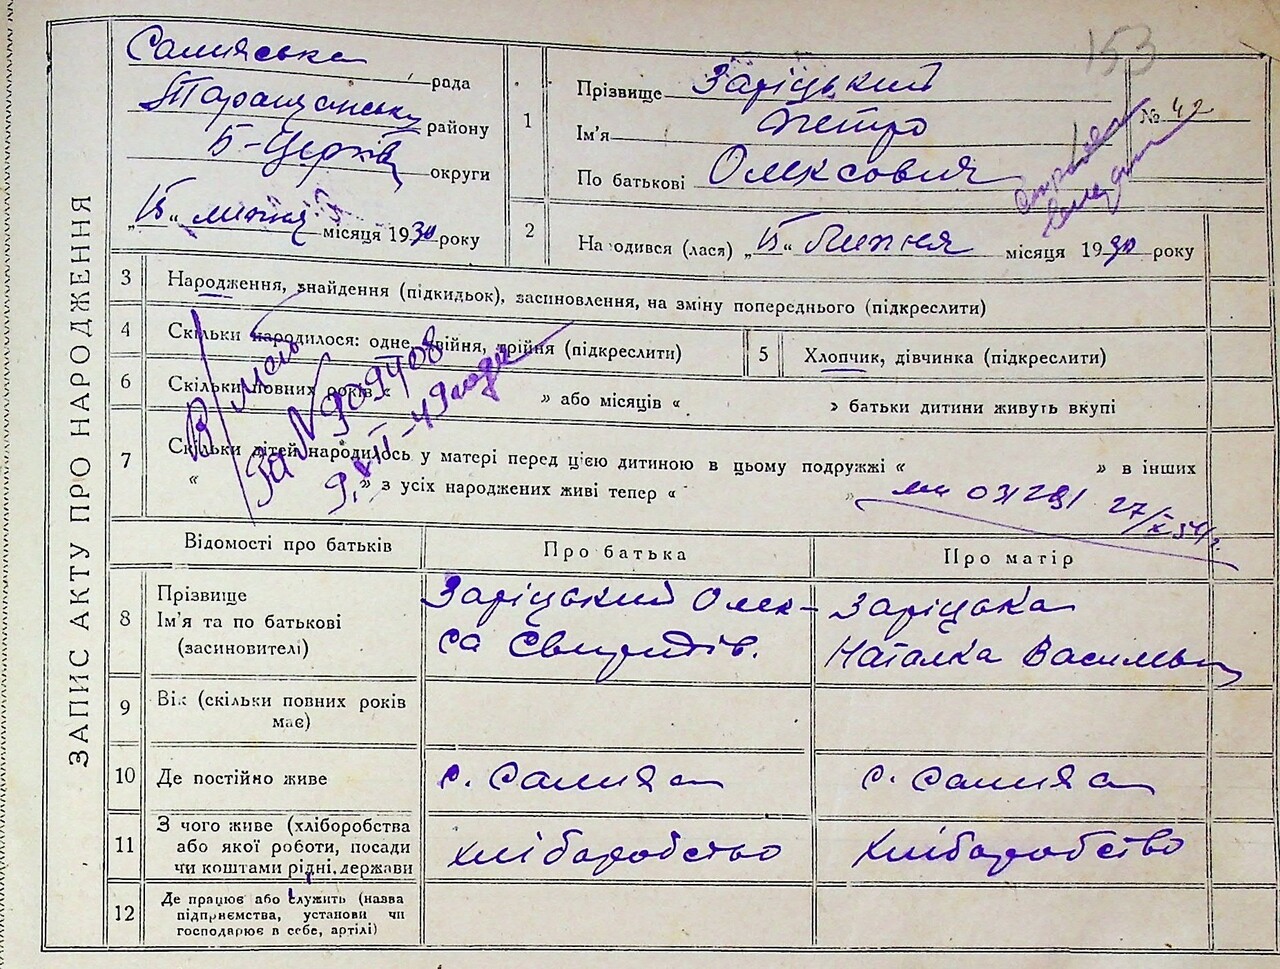 153
ЗАПИС АКТУ ПРО НАРОДЖЕННЯ
Салиська рада
Таращанськ району
Б-Церків округи
„15“ липня місяця 1930 року
1 Прізвище Заріцький
Ім'я Петро
По батькові Олексович
№ 42
2 На одився (лася) „15“ Липня місяця 1930 року
3 Народження, знайдення (підкидьок), засиновлення, на зміну попереднього (підкреслити)
4 Скільки народилося: одне, двійня, трійня (підкреслити)
5 Хлопчик, дівчинка (підкреслити)
6 Скільки повних років « » або місяців « » батьки дитини живуть вкупі
7 Скільки дітей народилось у матері перед цією дитиною в цьому подружжі « » в інших
« » з усіх народжених живі тепер « »
За № 909408
9.VII-49 года
03291 27/X 54 г.
Відомості про батьків
Про батька
Про матір
8 Прізвище
Ім'я та по батькові
(засиновителі)
Заріцький Олек-
са
Заріцька
Наталка Василівн
9 Вік (скільки повних років
має)
10 Де постійно живе
с. Салиха
с. Салиха
11 З чого живе (хліборобства
або якої роботи, посади
чи коштами рідні, держави
хліборобство
хліборобство
12 Де працює або служить (назва
підприємства, установи чи
господарює в себе, артілі)